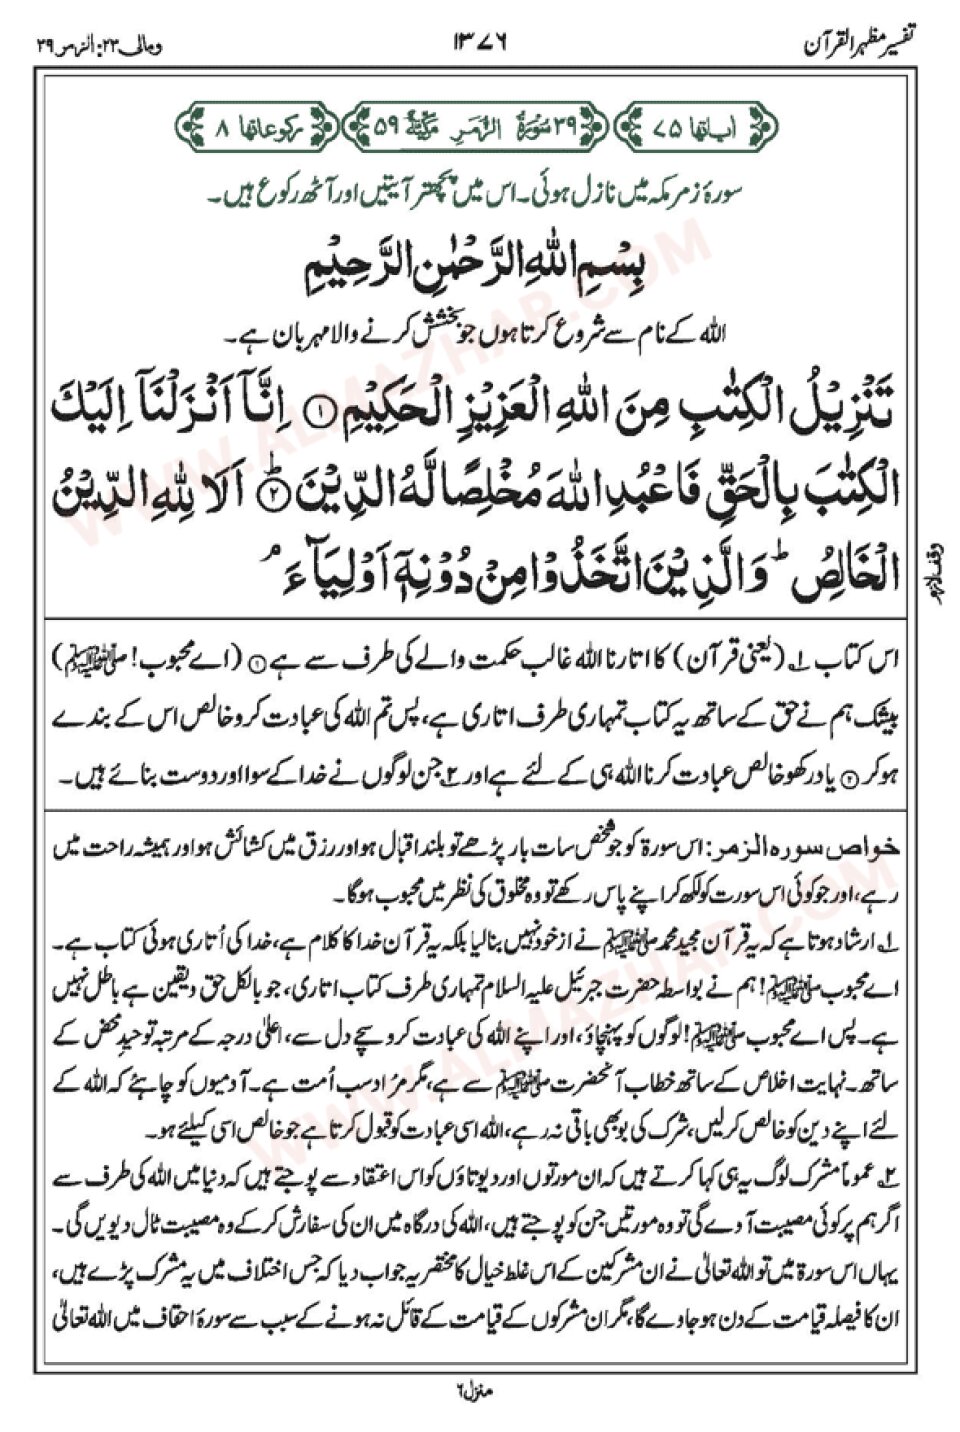 تفسیر مظہر القرآن
۱۳۷۶
ومالی ۲۳: الزمر ۳۹
اٰیاتھا ۷۵
۳۹ سُوْرَۃُ الزُّمَرِ مَکِّیَّۃٌ ۵۹
رکوعاتھا ۸
سورۂ زمر مکہ میں نازل ہوئی۔ اس میں پچھتر آیتیں اور آٹھ رکوع ہیں۔
بِسْمِ اللهِ الرَّحْمٰنِ الرَّحِيْمِ
اللہ کے نام سے شروع کرتا ہوں جو بخشش کرنے والا مہربان ہے۔
تَنْزِيْلُ الْكِتٰبِ مِنَ اللهِ الْعَزِيْزِ الْحَكِيْمِ ۱ اِنَّآ اَنْزَلْنَآ اِلَيْكَ
الْكِتٰبَ بِالْحَقِّ فَاعْبُدِ اللهَ مُخْلِصًا لَّهُ الدِّيْنَ ۲ؕ اَلَا لِلّٰهِ الدِّيْنُ
الْخَالِصُ ؕ وَالَّذِيْنَ اتَّخَذُوْا مِنْ دُوْنِهٖٓ اَوْلِيَآءَ ۘ
وقف لازم
اس کتاب ۱ (یعنی قرآن) کا اتارنا اللہ غالب حکمت والے کی طرف سے ہے ۱ (اے محبوب! ﷺ)
بیشک ہم نے حق کے ساتھ یہ کتاب تمہاری طرف اتاری ہے، پس تم اللہ کی عبادت کرو خالص اس کے بندے
ہو کر ۲ یاد رکھو خالص عبادت کرنا اللہ ہی کے لئے ہے اور ۲ جن لوگوں نے خدا کے سوا اور دوست بنائے ہیں۔
خواص سورہ الزمر: اس سورۃ کو جو شخص سات بار پڑھے تو بلند اقبال ہو اور رزق میں کشائش ہو اور ہمیشہ راحت میں
رہے، اور جو کوئی اس سورت کو لکھ کر اپنے پاس رکھے تو وہ مخلوق کی نظر میں محبوب ہوگا۔
۱ ارشاد ہوتا ہے کہ یہ قرآن مجید محمد ﷺ نے از خود نہیں بنا لیا بلکہ یہ قرآن خدا کا کلام ہے، خدا کی اُتاری ہوئی کتاب ہے۔
اے محبوب ﷺ! ہم نے بواسطہ حضرت جبرئیل علیہ السلام تمہاری طرف کتاب اتاری، جو بالکل حق و یقین ہے باطل نہیں
ہے۔ پس اے محبوب ﷺ! لوگوں کو پہنچاؤ، اور اپنے اللہ کی عبادت کرو سچے دل سے، اعلیٰ درجہ کے مرتبہ توحیدِ محض کے
ساتھ۔ نہایت اخلاص کے ساتھ خطاب آنحضرت ﷺ سے ہے، مگر مراد سب اُمت ہے۔ آدمیوں کو چاہئے کہ اللہ کے
لئے اپنے دین کو خالص کرلیں، شرک کی بو بھی باقی نہ رہے، اللہ اسی عبادت کو قبول کرتا ہے جو خالص اسی کیلئے ہو۔
۲ عموماً مشرک لوگ یہ ہی کہا کرتے ہیں کہ ان مورتوں اور دیوتاؤں کو اس اعتقاد سے پوجتے ہیں کہ دنیا میں اللہ کی طرف سے
اگر ہم پر کوئی مصیبت آوے گی تو وہ مورتیں جن کو پوجتے ہیں، اللہ کی درگاہ میں ان کی سفارش کر کے وہ مصیبت ٹال دیویں گی۔
یہاں اس سورۃ میں تو اللہ تعالیٰ نے ان مشرکین کے اس غلط خیال کا مختصر یہ جواب دیا کہ جس اختلاف میں یہ مشرک پڑے ہیں،
ان کا فیصلہ قیامت کے دن ہو جاوے گا، مگر ان مشرکوں کے قیامت کے قائل نہ ہونے کے سبب سے سورۂ احقاف میں اللہ تعالیٰ
منزل ۶
WWW.ALMAZHAR.COM
WWW.ALMAZHAR.COM